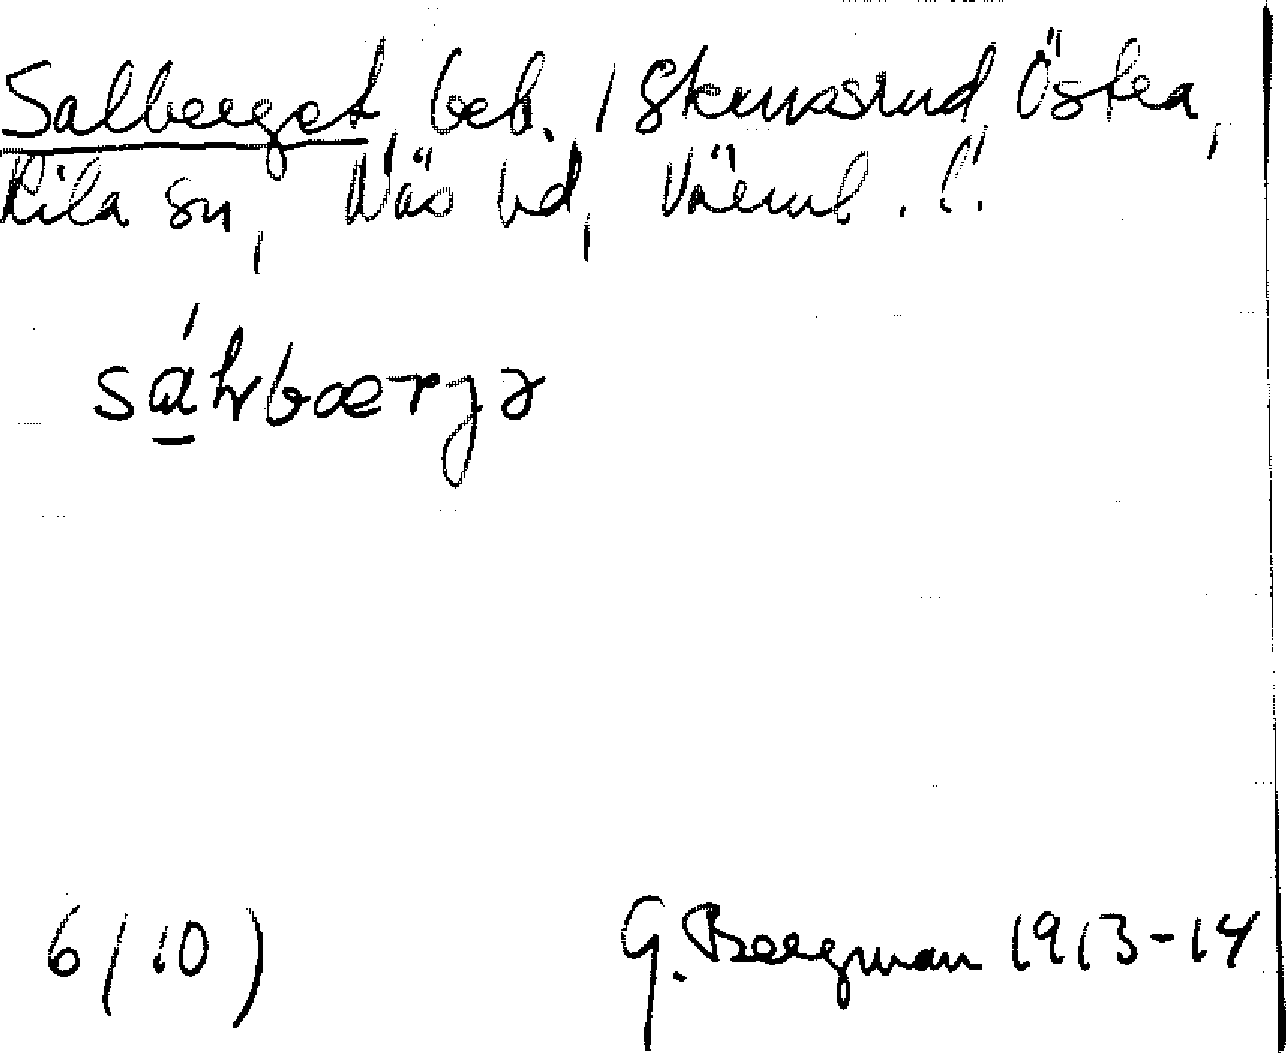 Salberget, beb. i Skamsrud, Östra,
Kila sn, Näs hd, Värml. l.
sáhrbærjə
6 (10)
G. Bergman 1913-14